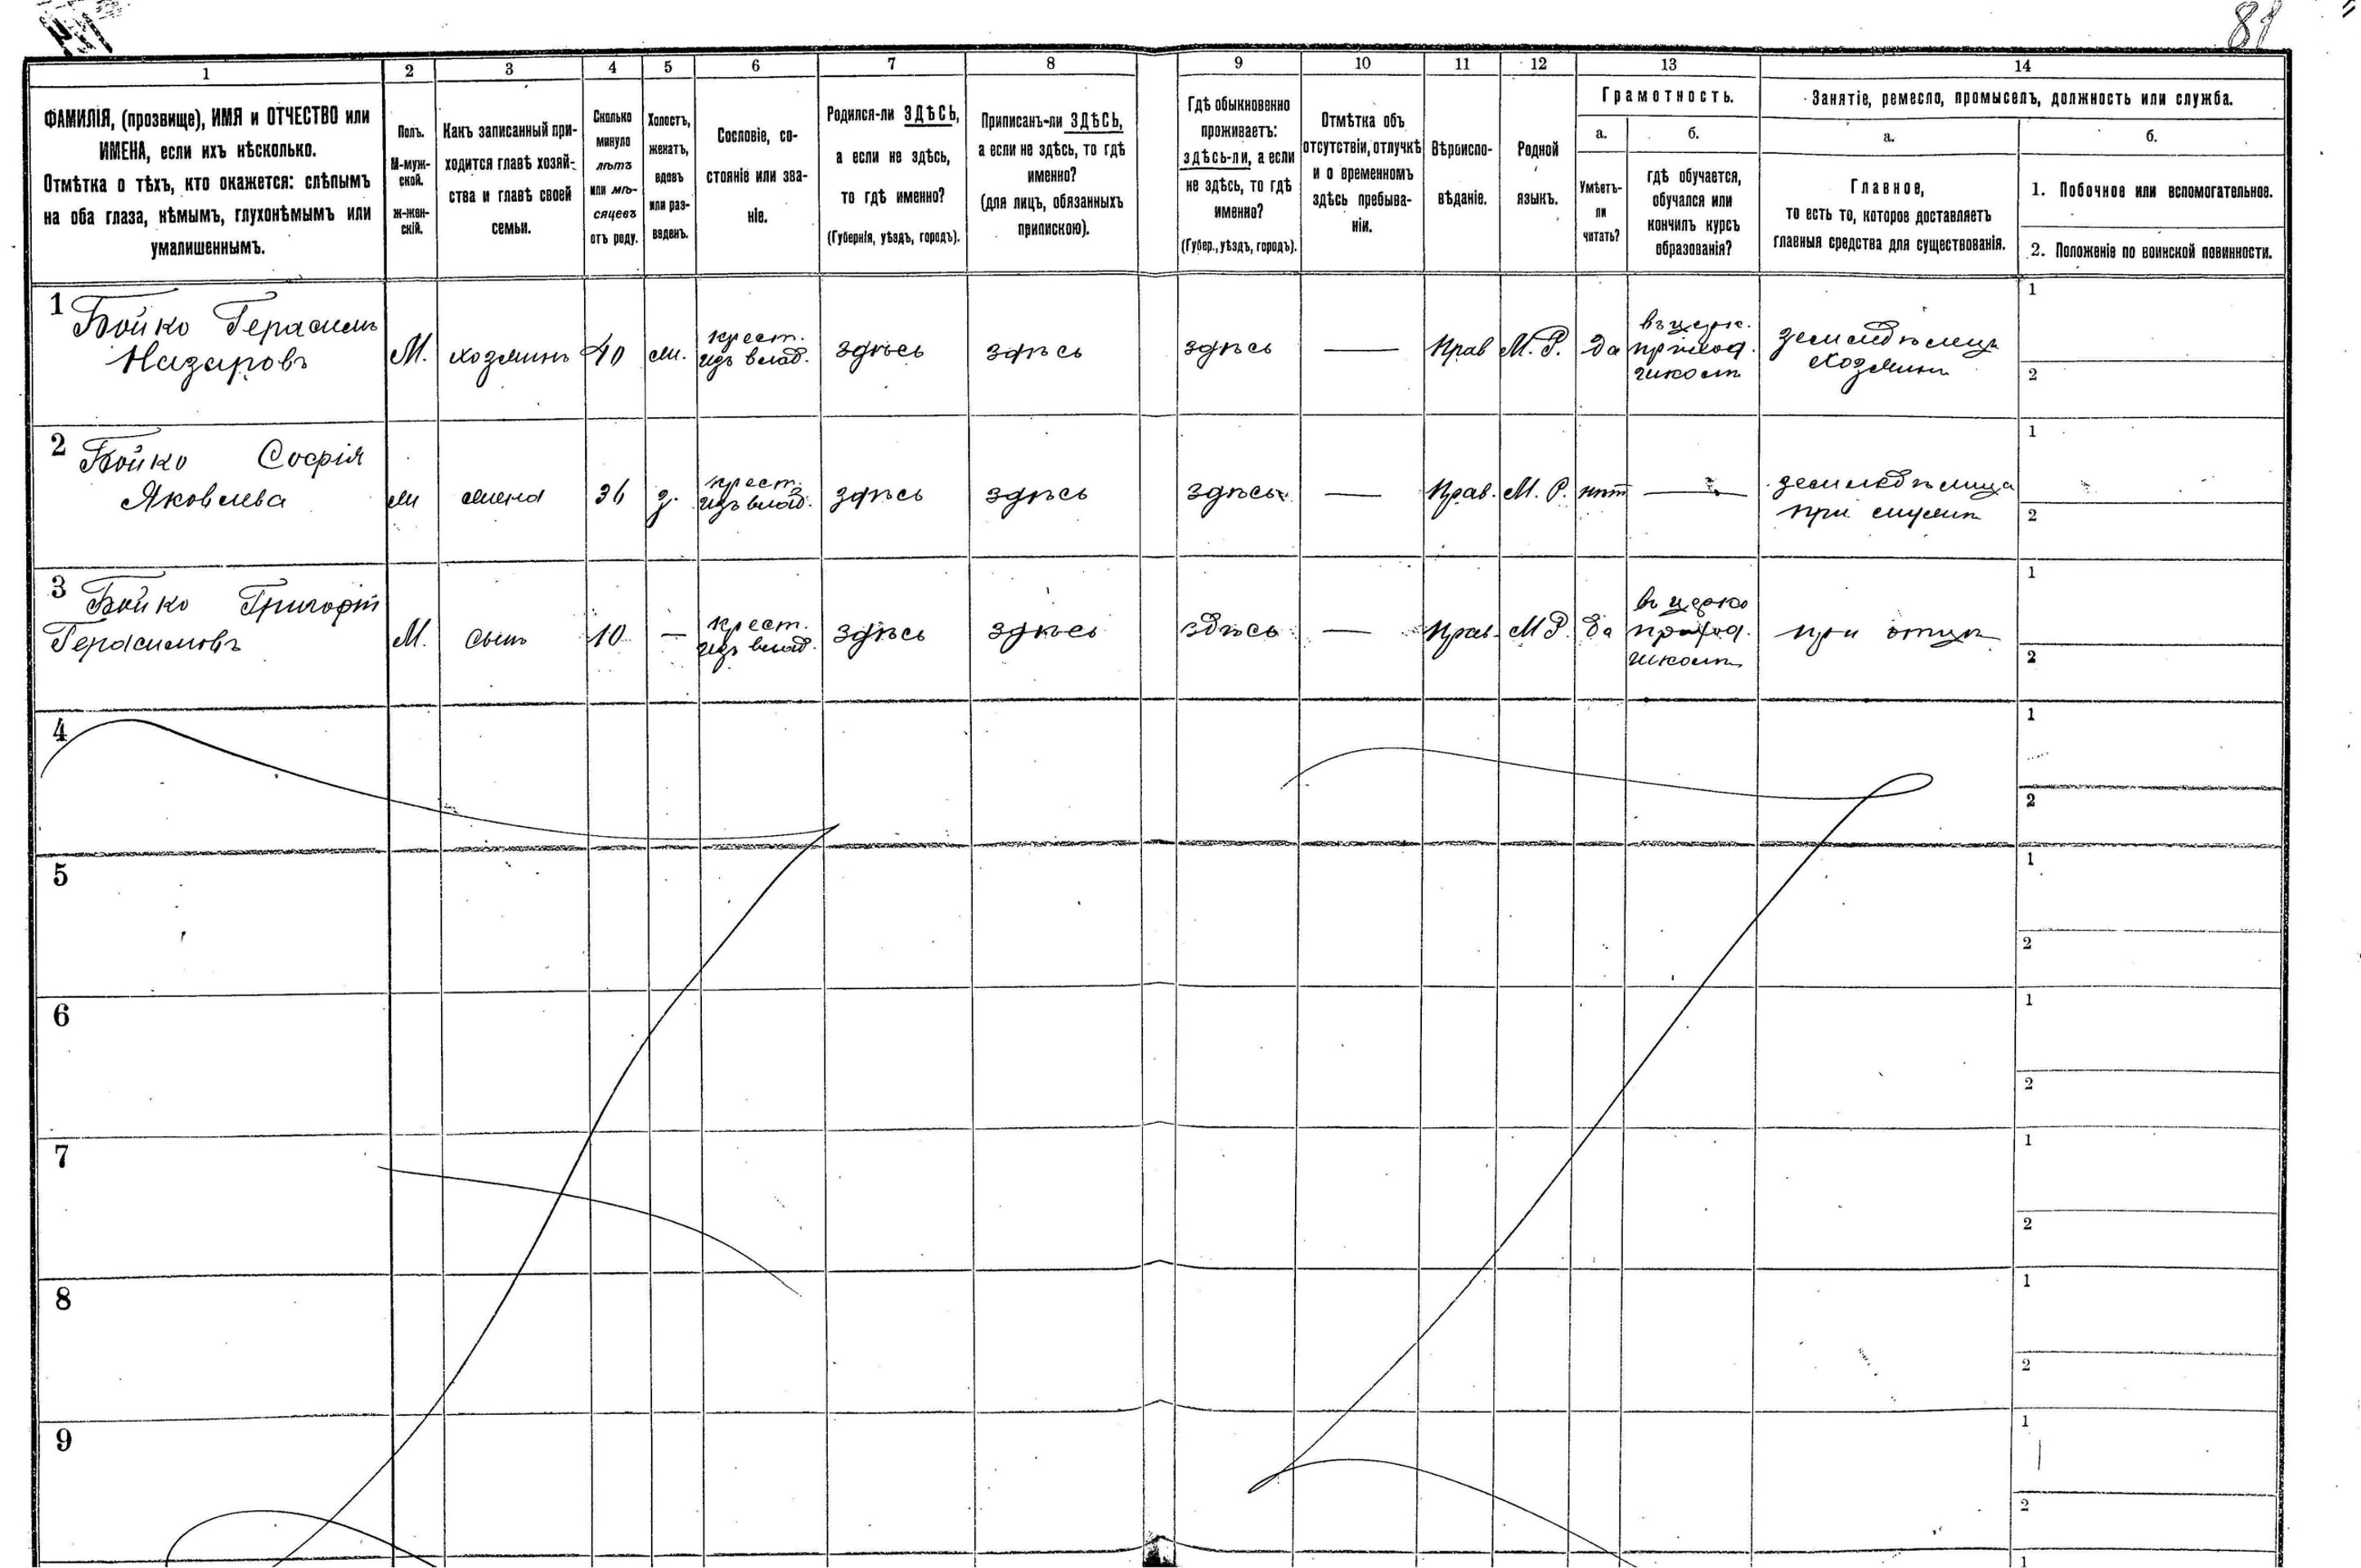 81
1 2 3 4 5 6 7 8 9 10 11 12 13 14
ФАМИЛІЯ, (прозвище), ИМЯ и ОТЧЕСТВО или
ИМЕНА, если ихъ нѣсколько.
Отмѣтка о тѣхъ, кто окажется: слѣпымъ
на оба глаза, нѣмымъ, глухонѣмымъ или
умалишеннымъ.
Полъ.
М-муж-
ской.
ж-жен-
скій.
Какъ записанный при-
ходится главѣ хозяй-
ства и главѣ своей
семьи.
Сколько
минуло
лѣтъ
или мѣ-
сяцевъ
отъ роду.
Холостъ,
женатъ,
вдовъ
или раз-
веденъ.
Сословіе, со-
стояніе или зва-
ніе.
Родился-ли ЗДѢСЬ,
а если не здѣсь,
то гдѣ именно?
(Губернія, уѣздъ, городъ).
Приписанъ-ли ЗДѢСЬ,
а если не здѣсь, то гдѣ
именно?
(для лицъ, обязанныхъ
припискою).
Гдѣ обыкновенно
проживаетъ:
здѣсь-ли, а если
не здѣсь, то гдѣ
именно?
(Губер., уѣздъ, городъ).
Отмѣтка объ
отсутствіи, отлучкѣ
и о временномъ
здѣсь пребыва-
ніи.
Вѣроиспо-
вѣданіе.
Родной
языкъ.
Грамотность.
а.
Умѣетъ-
ли
читать?
б.
гдѣ обучается,
обучался или
кончилъ курсъ
образованія?
Занятіе, ремесло, промыселъ, должность или служба.
а.
Главное,
то есть то, которое доставляетъ
главныя средства для существованія.
б.
1. Побочное или вспомогательное.
2. Положеніе по воинской повинности.
1
Бойко Герасимъ
Назаровъ
М.
хозяинъ
40
ж.
крест.
изъ влад.
здѣсь
здѣсь
здѣсь
—
Прав
М. Р.
да
въ церк.
приход.
школѣ
земледѣлецъ
хозяинъ
1
2
2
Бойко Софія
Яковлева
ж
жена
36
з.
крест.
изъ влад.
здѣсь
здѣсь
здѣсь
—
Прав.
М. Р.
нѣт
—
земледѣлица
при мужѣ
1
2
3
Бойко Григорій
Герасимовъ
М.
сынъ
10
—
крест.
изъ влад.
здѣсь
здѣсь
здѣсь
—
Прав.
М Р.
да
въ церко
приход.
школѣ
при отцѣ
1
2
4
1
2
5
1
2
6
1
2
7
1
2
8
1
2
9
1
2
1